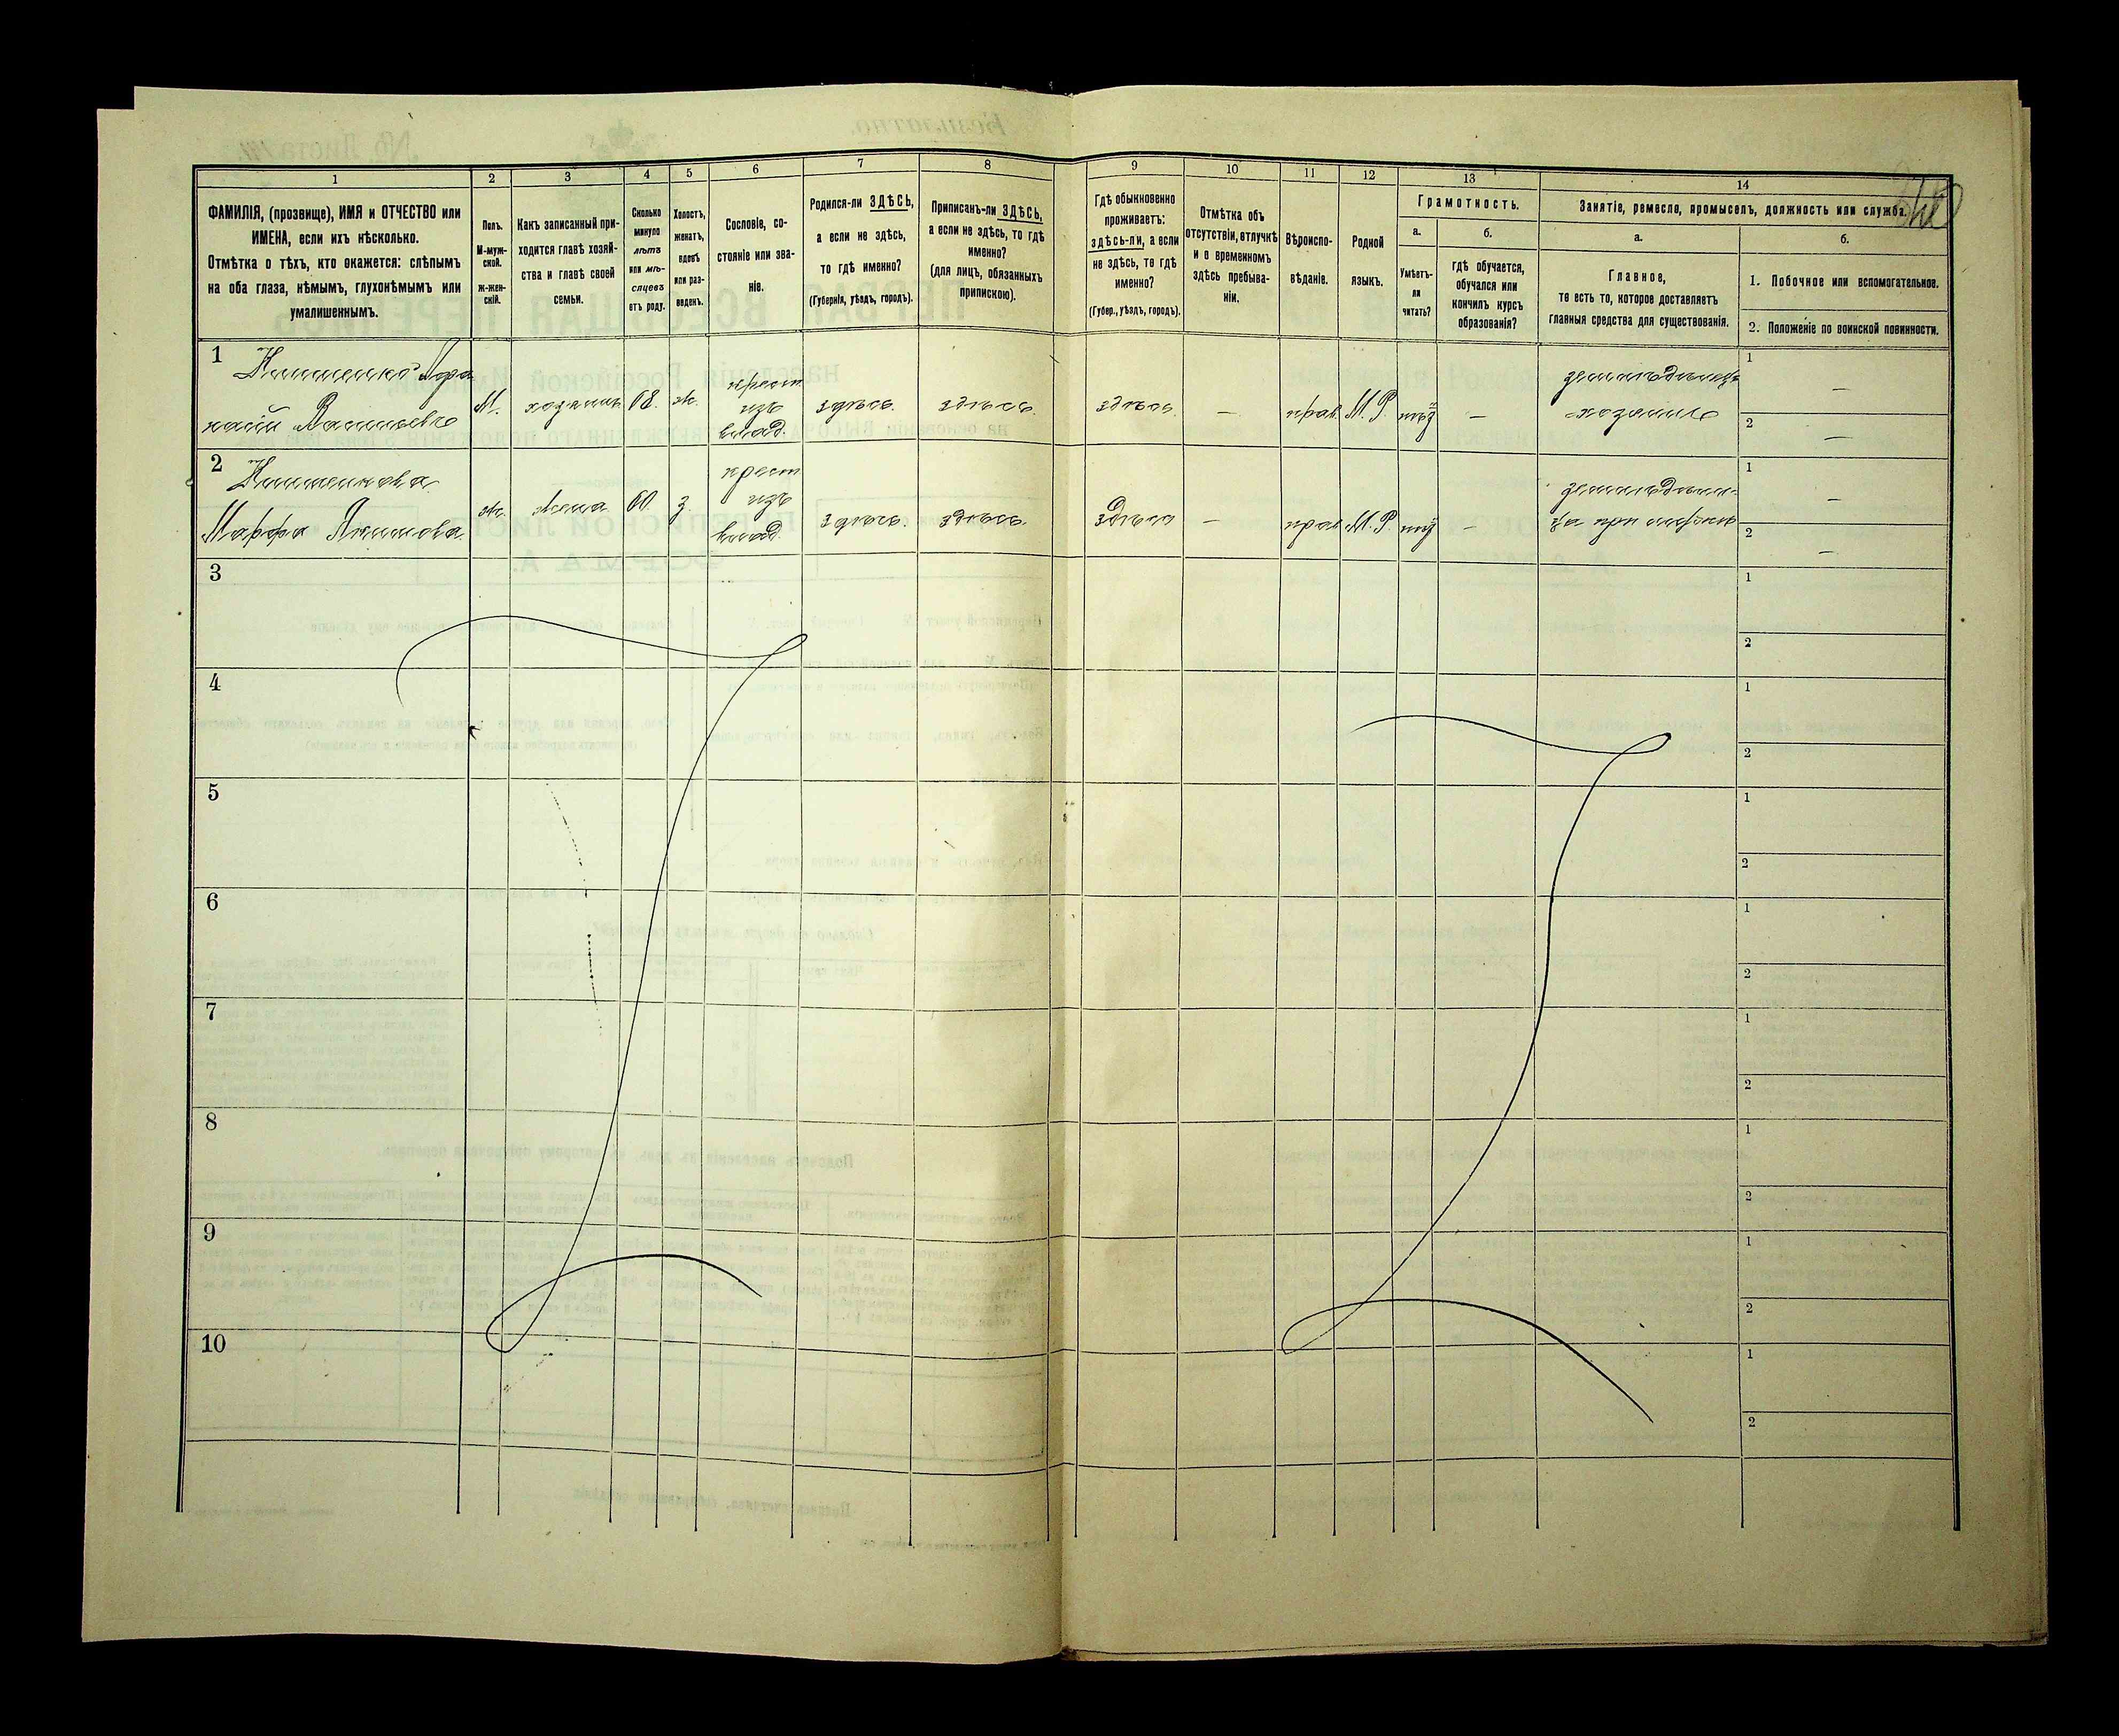 1
2
3
4
5
6
7
8
9
10
11
12
13
14
ФАМИЛІЯ, (прозвище), ИМЯ и ОТЧЕСТВО или
ИМЕНА, если ихъ нѣсколько.
Отмѣтка о тѣхъ, кто окажется: слѣпымъ
на оба глаза, нѣмымъ, глухонѣмымъ или
умалишеннымъ.
Полъ.
М-муж-
ской.
ж-жен-
скій.
Какъ записанный при-
ходится главѣ хозяй-
ства и главѣ своей
семьи.
Сколько
минуло
лѣтъ
или мѣ-
сяцевъ
отъ роду.
Холостъ,
женатъ,
вдовъ
или раз-
веденъ.
Сословіе, со-
стояніе или зва-
ніе.
Родился-ли ЗДѢСЬ,
а если не здѣсь,
то гдѣ именно?
(Губернія, уѣздъ, городъ).
Приписанъ-ли ЗДѢСЬ,
а если не здѣсь, то гдѣ
именно?
(для лицъ, обязанныхъ
припискою).
Гдѣ обыкновенно
проживаетъ:
здѣсь-ли, а если
не здѣсь, то гдѣ
именно?
(Губер., уѣздъ, городъ).
Отмѣтка объ
отсутствіи, отлучкѣ
и о временномъ
здѣсь пребыва-
ніи.
Вѣроиспо-
вѣданіе.
Родной
языкъ.
Грамотность.
а.
Умѣетъ-
ли
читать?
б.
гдѣ обучается,
обучался или
кончилъ курсъ
образованія?
Занятіе, ремесло, промыселъ, должность или служба.
а.
Главное,
то есть то, которое доставляетъ
главныя средства для существованія.
б.
1. Побочное или вспомогательное.
2. Положеніе по воинской повинности.
1
М.
хозяинъ
68.
ж.
крест.
изъ
влад.
здѣсь.
здѣсь.
здѣсь.
—
прав.
М. Р.
нѣт
—
земледѣлец-
хозяинъ
1 —
2 —
2
Марфа Якимова
ж.
жена
60.
з.
крест.
изъ
влад.
здѣсь.
здѣсь.
здѣсь
—
прав.
М. Р.
нѣт
—
1 —
2 —
3
1
2
4
1
2
5
1
2
6
1
2
7
1
2
8
1
2
9
1
2
10
1
2